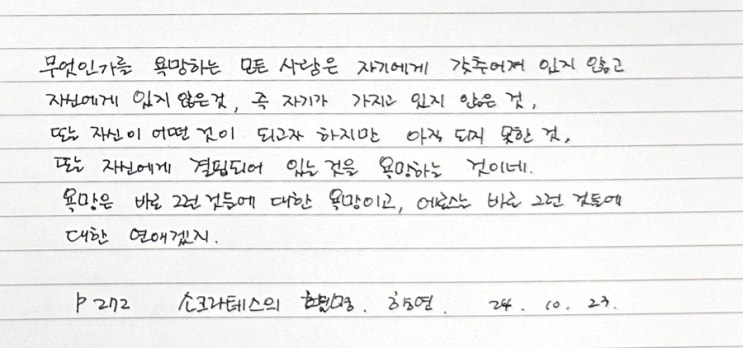 무엇인가를 욕망하는 모든 사람은 자기에게 갖추어져 있지 않고
자신에게 있지 않은것, 즉 자기가 가지고 있지 않은 것,
또는 자신이 어떤 것이 되고자 하지만 아직 되지 못한 것,
또는 자신에게 결핍되어 있는 것을 욕망하는 것이네.
욕망은 바로 그런 것들에 대한 욕망이고, 에로스는 바로 그런 것들에
대한 연애겠지.
P 272 소크라테스의 변명. 향연. 24. 10. 23.